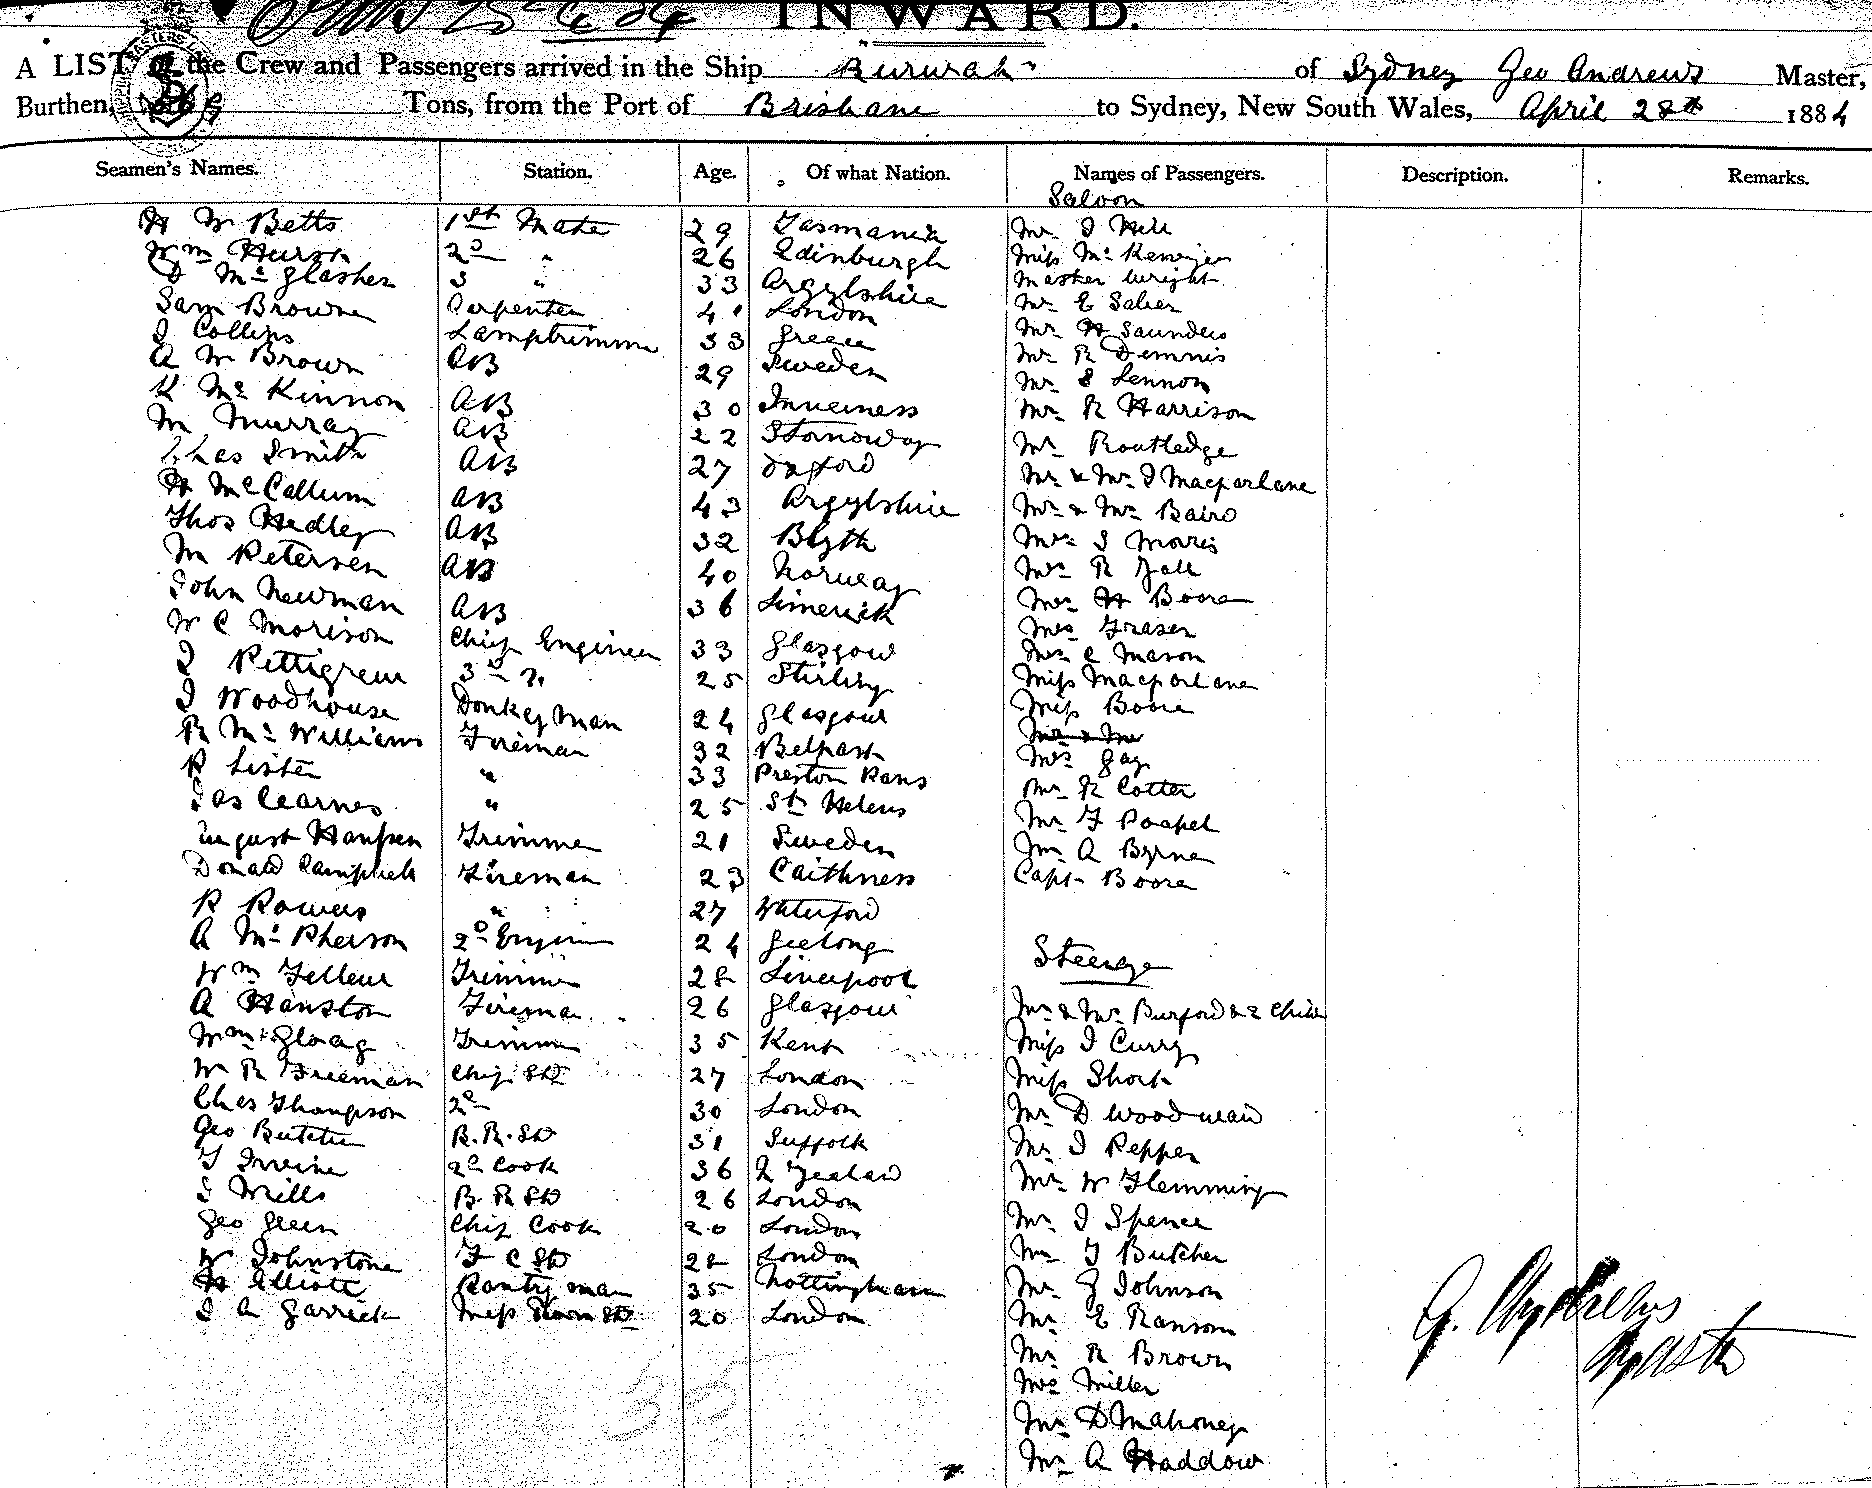 INWARD.
A LIST of the Crew and Passengers arrived in the Ship Burwah of Sydney Geo Andrews Master,
Burthen, Tons, from the Port of Brisbane to Sydney, New South Wales, April 28th 1884
Seamen's Names. Station. Age. Of what Nation. Names of Passengers. Description. Remarks.
Saloon
H W Betts 1st Mate 29 Tasmania Mr J Hill
Wm Hurst 2d " 26 Edinburgh Miss Mc
D McGlashen 3 " 33 Argylshire Master Wright
Sam Browne Carpenter 41 London Mr E Salier
J Collins Lamptrimmer 33 Greece Mr H Saunders
A W Brown AB 29 Sweden Mr R Dennis
K McKinnon AB 30 Inverness Mr S Lennon
M Murray AB 22 Stornoway Mr R Harrison
Chas Smith AB 27 Oxford Mr Routledge
H McCallum AB 43 Argylshire Mr & Mrs J Macfarlane
Thos Hedley AB 32 Blyth Mr & Mrs Baird
M Petersen AB 40 Norway Mrs J Morris
John Newman AB 36 Limerick Mrs R
W C Morison Chief Engineer 33 Glasgow Mrs H Boore
J Pettigrew 3d 25 Stirling Mrs Fraser
J Woodhouse Donkeyman 24 Glasgow Mrs C Mason
R McWilliams Fireman 32 Belfast Miss Macfarlane
R Lister " 33 Preston Pans Miss Boore
Jas Cearnes " 25 St Helens Mr & Mr
August Hanssen Trimmer 21 Sweden Mrs Gay
Donald Campbell Fireman 23 Caithness Mr R Cotter
R Powers " 27 Waterford Mr F Poapel
A McPherson 2d Engineer 24 Geelong Mr A Byrne
Wm Trimmer 28 Liverpool Capt Boore
A Hanston Fireman 26 Glasgow Steerage
Wm Gloag Trimmer 35 Kent Mr & Mrs Burford & 2 Child
W R Freeman Chief Std 27 London Miss J Curry
Chas Thompson 2d 30 London Miss Short
Geo Butcher B.R.Std 31 Suffolk Mr D Woodward
T Irvine 2d Cook 36 N Zealand Mr J Pepper
J Mills B.R Std 26 London Mr W Flemming
Geo Green Chief Cook 20 London Mr J Spence
W Johnstone F C Std 28 London Mr T Butcher
H Elliott Pantryman 35 Nottingham Mr J Johnson
J A Garrick Mess Room Std 20 London Mr E Ransom
Mr R Brown
Mrs Miller
Mr D Mahoney
Mr A Haddow
G. Andrews
Master